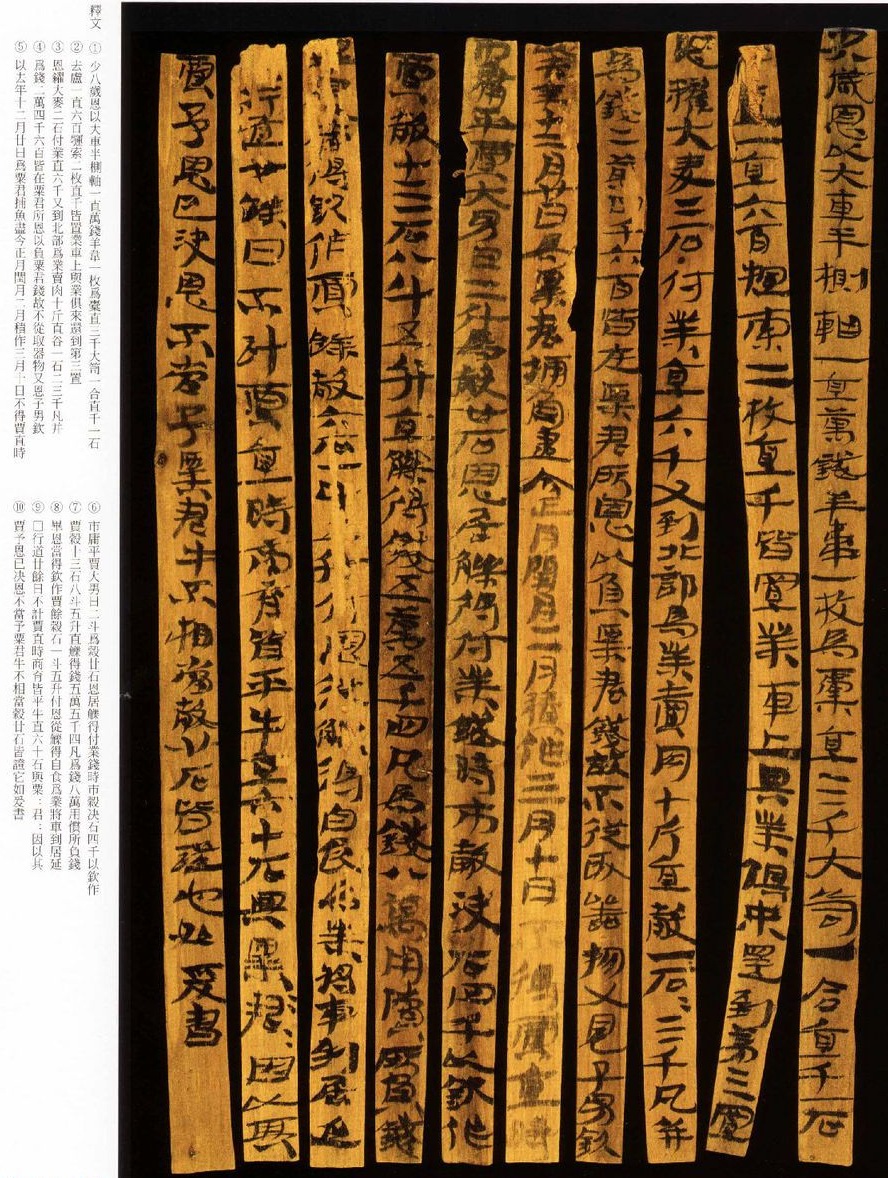 少八歲恩以大車半側軸一直萬錢羊韋一枚為橐直三千大笥一合直千一石
去盧一直六百索二枚直千皆置業車上與業俱來還到第三置
恩糴大麥二石付業直六千又到北部為業賣肉十斤直穀一石=三千凡并
為錢二萬四千六百皆在粟君所恩以負粟君錢故不從取器物又恩子男欽
以去年十二月廿日為粟君捕魚盡今正月閏月二月積作三月十日不得賈直時
市庸平賈大男日二斗為穀廿石恩居觻得付業錢時市穀決石四千以欽作
賈穀十三石八斗五升直觻得錢五萬五千四凡為錢八萬用償所負錢
畢恩當得欽作賈餘穀六石一斗五升付恩從觻得自食為業將車到居延
行道廿餘日不計賈直時商育皆平牛直六十石與粟=君=因以其
賈予恩已決恩不當予粟君牛不相當穀廿石皆證也如爰書
釋文
① 少八歲恩以大車半側軸一直萬錢羊韋一枚爲橐直三千大笥一合直千一石
② 去盧一直六百索二枚直千皆置業車上與業俱來還到第三置
③ 恩糴大麥二石付業直六千又到北部爲業賣肉十斤直谷一石二三千凡并
④ 爲錢二萬四千六百皆在粟君所恩以負粟君錢故不從取器物又恩子男欽
⑤ 以去年十二月廿日爲粟君捕魚盡今正月閏月二月積作三月十日不得賈直時
⑥ 市庸平賈大男日二斗爲穀廿石恩居觻得付業錢時市穀決石四千以欽作
⑦ 賈穀十三石八斗五升直觻得錢五萬五千四凡爲錢八萬用償所負錢
⑧ 畢恩當得欽作賈餘穀石一斗五升付恩從觻得自食爲業將車到居延
⑨ □行道廿餘日不計賈直時商育皆平牛直六十石與粟：君：因以其
⑩ 賈予恩已決恩不當予粟君牛不相當穀廿石皆證它如爰書